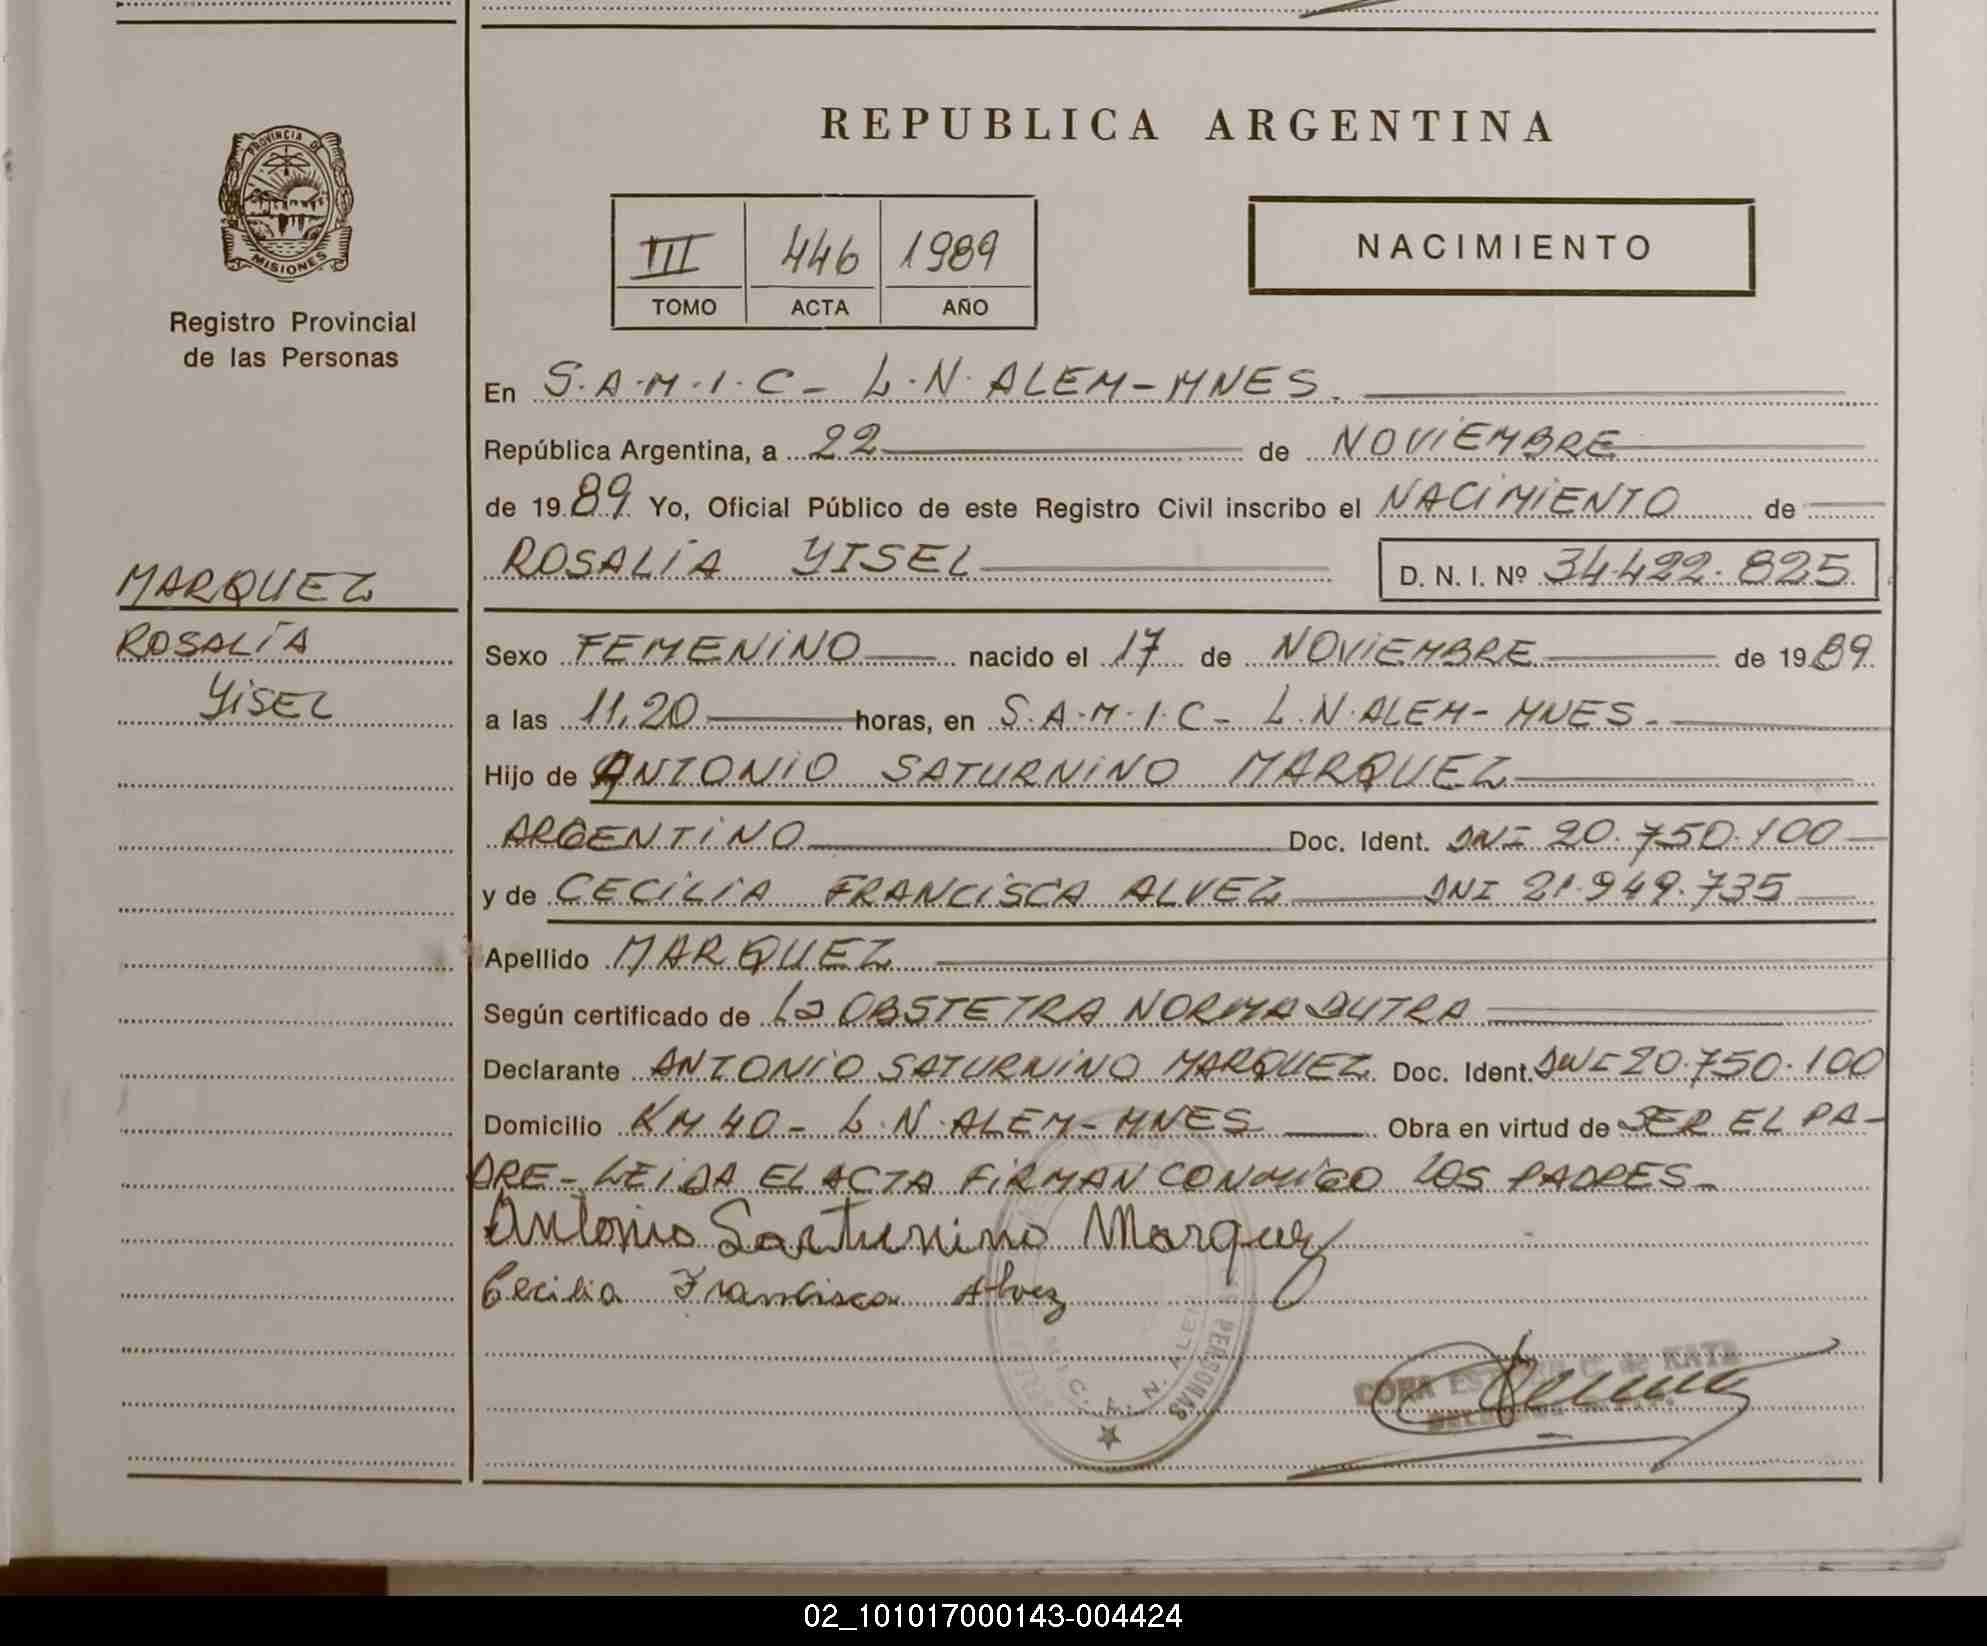 REPUBLICA ARGENTINA
PROVINCIA DE
MISIONES
Registro Provincial
de las Personas
III 446 1989
TOMO ACTA AÑO
NACIMIENTO
En S.A.M.I.C- L.N.ALEM-MNES.
República Argentina, a 22 de NOVIEMBRE
de 1989. Yo, Oficial Público de este Registro Civil inscribo el NACIMIENTO de
ROSALIA YISEL D. N. I. Nº 34.422.825
MARQUEZ
ROSALÍA
YISEL
Sexo FEMENINO nacido el 17 de NOVIEMBRE de 1989
a las 11,20 horas, en S.A.M.I.C- L.N.ALEM- MNES-
Hijo de ANTONIO SATURNINO MARQUEZ
ARGENTINO Doc. Ident. DNI 20.750.100
y de CECILIA FRANCISCA ALVEZ DNI 21.949.735
Apellido MARQUEZ
Según certificado de La OBSTETRA NORMA DUTRA
Declarante ANTONIO SATURNINO MARQUEZ Doc. Ident. DNI 20.750.100
Domicilio KM 40- L.N.ALEM-MNES Obra en virtud de SER EL PA-
DRE- LEIDA EL ACTA FIRMAN CONMIGO LOS PADRES-
Antonio Sarturnino Marquez
Cecilia Francisca Alvez
PERSONAS
C. L. N. ALEM
CORA ES C. de KATZ
02_101017000143-004424